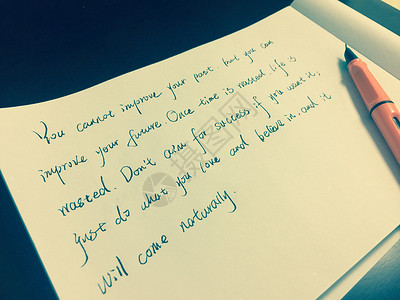 You cannot improve your past, but you can
improve your future. Once time is wasted, life is
wasted. Don't aim for success if you want it,
just do what you love and believe in, and it
will come naturally.